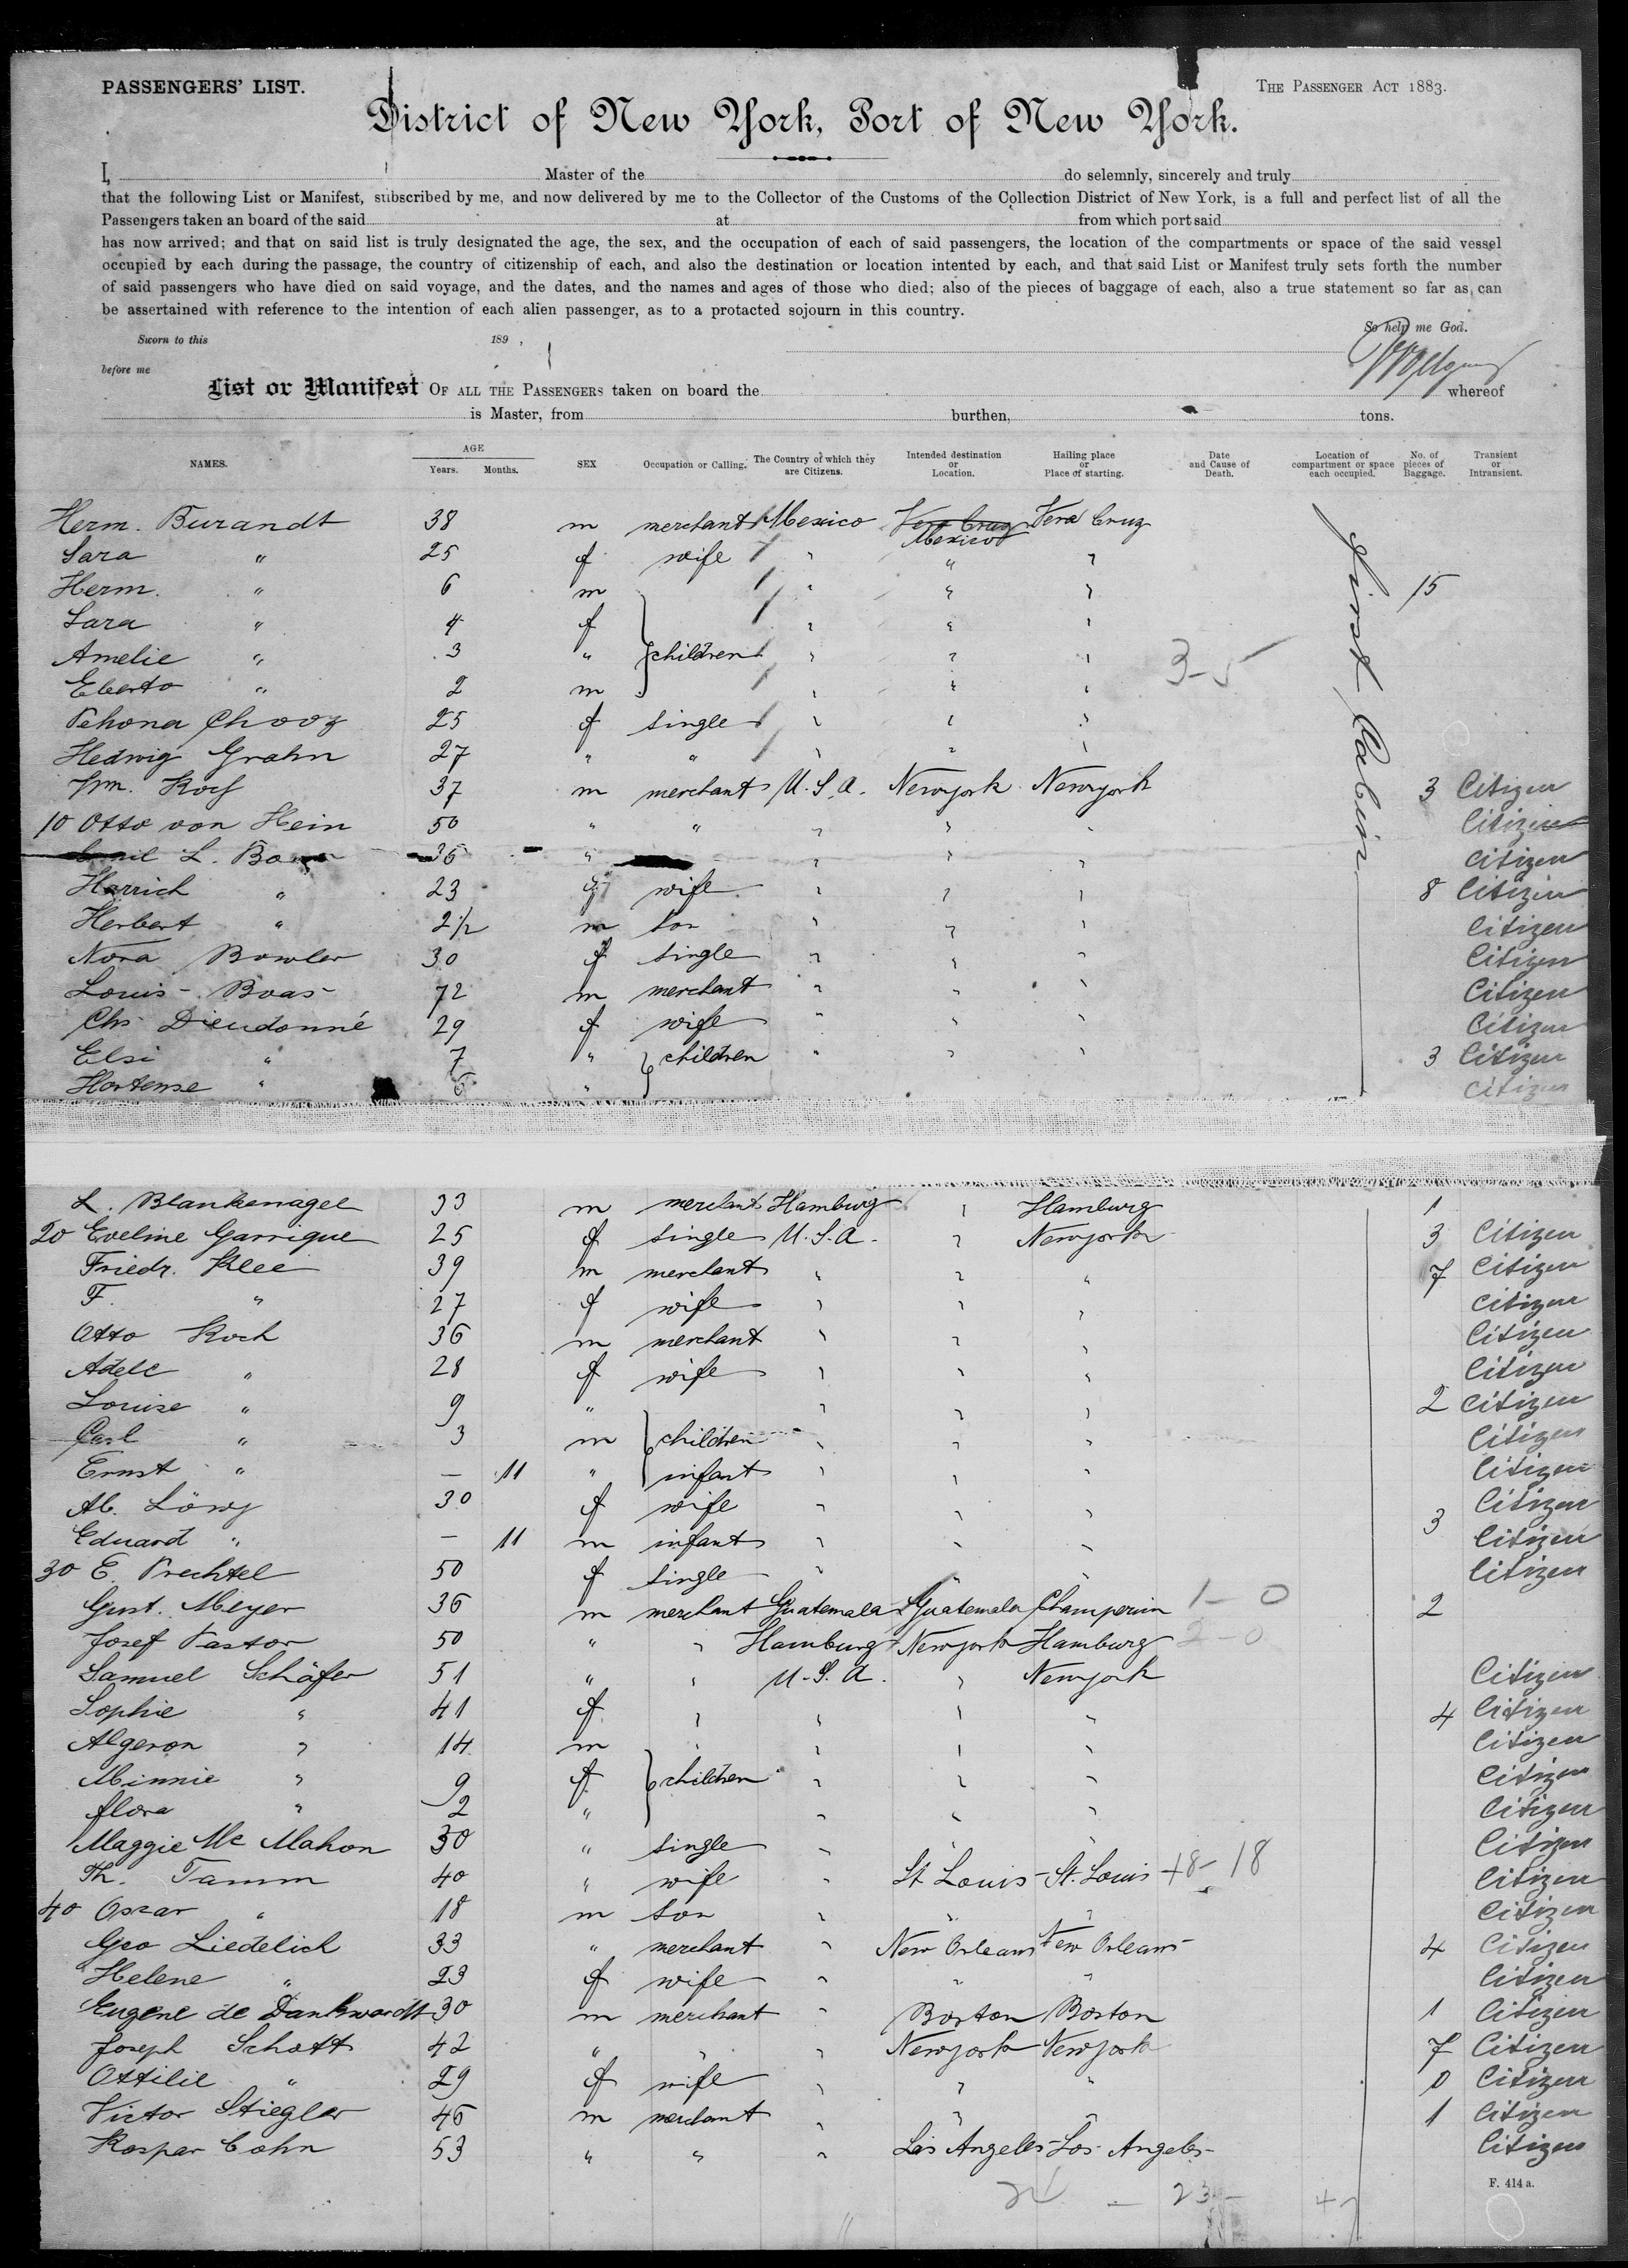 PASSENGERS' LIST.
THE PASSENGER ACT 1883.
District of New York, Port of New York.
I, Master of the do selemnly, sincerely and truly
that the following List or Manifest, subscribed by me, and now delivered by me to the Collector of the Customs of the Collection District of New York, is a full and perfect list of all the
Passengers taken an board of the said at from which port said
has now arrived; and that on said list is truly designated the age, the sex, and the occupation of each of said passengers, the location of the compartments or space of the said vessel
occupied by each during the passage, the country of citizenship of each, and also the destination or location intented by each, and that said List or Manifest truly sets forth the number
of said passengers who have died on said voyage, and the dates, and the names and ages of those who died; also of the pieces of baggage of each, also a true statement so far as can
be assertained with reference to the intention of each alien passenger, as to a protacted sojourn in this country.
So help me God.
Sworn to this 189 ,
before me
List or Manifest OF ALL THE PASSENGERS taken on board the whereof
is Master, from burthen, tons.
NAMES. AGE Years. Months. SEX Occupation or Calling. The Country of which they are Citizens. Intended destination or Location. Hailing place or Place of starting. Date and Cause of Death. Location of compartment or space each occupied. No. of pieces of Baggage. Transient or Intransient.
First Cabin
Herm. Burandt 38 m merchant Mexico Vera Cruz Mexico Vera Cruz
Sara " 25 f wife " " "
Herm. " 6 m " " " 15
Sara " 4 f " " "
Amelie " 3 " children " " " 3-5
Eberto " 2 m " " "
25 f single " " "
Hedwig Grahn 27 " " " " "
Wm. 37 m merchant U.S.A. Newyork Newyork 3 Citizen
10 Otto von Hein 50 " " " " " Citizen
L. 36 " " " " Citizen
Harrich " 23 f wife " " " 8 Citizen
Herbert " 2 1/2 m son " " " Citizen
Nora Bowler 30 f single " " " Citizen
Louis Boas 72 m merchant " " " Citizen
Chs Dieudonné 29 f wife " " " Citizen
Elsi " 7 " children " " " 3 Citizen
Hortense " 6 " Citizen
L. Blankenagel 33 m merchant Hamburg " Hamburg 1
20 Eveline Garrigue 25 f single U.S.A. " Newyork 3 Citizen
Friedr. Klee 39 m merchant " " " 7 Citizen
F. " 27 f wife " " " Citizen
Otto Koch 36 m merchant " " " Citizen
Adele " 28 f wife " " " Citizen
Louise " 9 " " " " 2 Citizen
Carl " 3 m children " " " Citizen
Ernst " — 11 " infant " " " Citizen
Ab. Löwy 30 f wife " " " Citizen
Eduard " — 11 m infant " " " 3 Citizen
30 E. Prechtel 50 f single " " " Citizen
Gust. Meyer 36 m merchant Guatemala Guatemala Champerico 1-0 2
Josef Pastor 50 " " Hamburg Newyork Hamburg 2-0
Samuel Schäfer 51 " " U.S.A. " Newyork Citizen
Sophie " 41 f " " " " 4 Citizen
Algeron " 14 m " " " " Citizen
Minnie " 9 f children " " " Citizen
Flora " 2 " " " " Citizen
Maggie Mc Mahon 30 " single " " " Citizen
Th. Tamm 40 " wife " St. Louis St. Louis 18 Citizen
40 Oscar " 18 m son " " " Citizen
Geo Liedelich 33 " merchant " New Orleans New Orleans 4 Citizen
Helene " 23 f wife " " " Citizen
Eugene de Dankwardt 30 m merchant " Boston Boston 1 Citizen
Joseph Schott 42 " " " Newyork Newyork 7 Citizen
Ottilie " 29 f wife " " " 0 Citizen
Victor Stiegler 46 m merchant " " " 1 Citizen
Kaspar Cohn 53 " " " Los Angeles Los Angeles Citizen
23
47
F. 414 a.